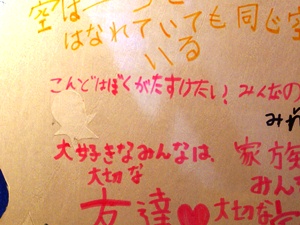 空は
はなれていても同じ空
いる
こんどはぼくがたすけたい! みんなの
みれ
大好きなみんなは、家族
大切な みん
友達♥大切な